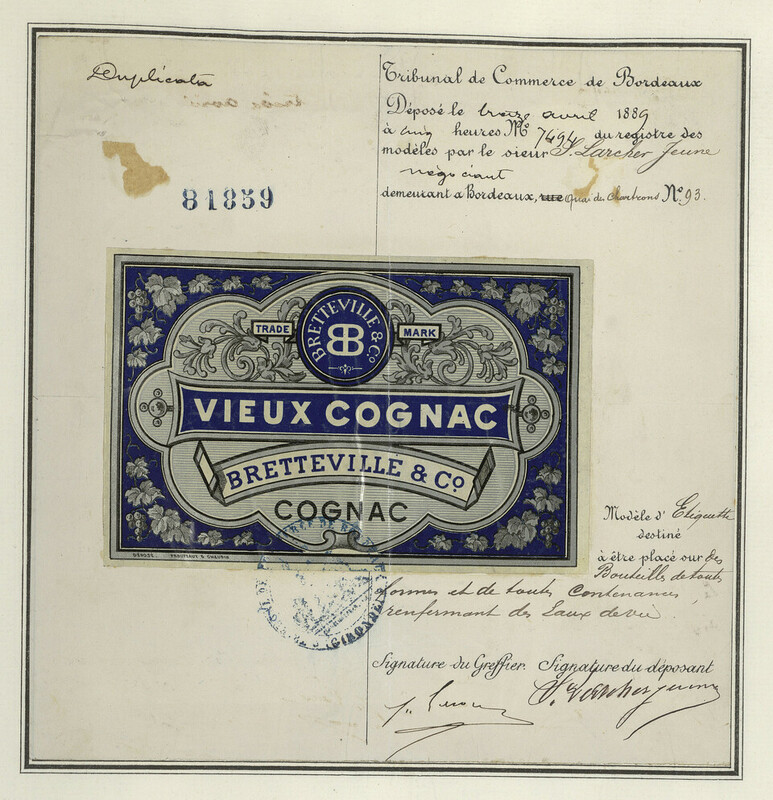 Duplicata
81859
Tribunal de Commerce de Bordeaux
Déposé le treize avril 1889
à cinq heures Nº 7494 du registre des
modèles par le sieur S. Larcher Jeune
négociant
demeurant à Bordeaux, rue Quai des Chartrons Nº 93.
BRETTEVILLE & Cº
TRADE BB MARK
VIEUX COGNAC
BRETTEVILLE & Cº
COGNAC
DÉPOSÉ
Modèle d' Etiquette
destiné
à être placé sur des
Bouteilles de toutes
formes et de toutes contenances
renfermant des Eaux de vie
GIRONDE
Signature du Greffier. Signature du déposant
S. Larcher jeune